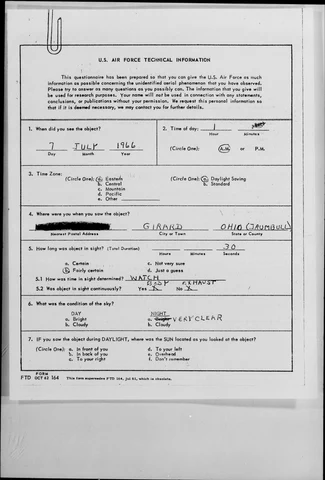 U.S. AIR FORCE TECHNICAL INFORMATION
This questionnaire has been prepared so that you can give the U.S. Air Force as much
information as possible concerning the unidentified aerial phenomenon that you have observed.
Please try to answer as many questions as you possibly can. The information that you give will
be used for research purposes. Your name will not be used in connection with any statements,
conclusions, or publications without your permission. We request this personal information so
that if it is deemed necessary, we may contact you for further details.
1. When did you see the object?
7 JULY 1966
Day Month Year
2. Time of day: 1
Hour Minutes
(Circle One): A.M. or P.M.
3. Time Zone:
(Circle One): a. Eastern
b. Central
c. Mountain
d. Pacific
e. Other
(Circle One): a. Daylight Saving
b. Standard
4. Where were you when you saw the object?
GIRARD OHIO (TRUMBULL)
Nearest Postal Address City or Town State or County
5. How long was object in sight? (Total Duration) 30
Hours Minutes Seconds
a. Certain c. Not very sure
b. Fairly certain d. Just a guess
5.1 How was time in sight determined? WATCH
BODY EXHAUST
5.2 Was object in sight continuously? Yes X No X
6. What was the condition of the sky?
DAY NIGHT
a. Bright a. VERY CLEAR
b. Cloudy b. Cloudy
7. IF you saw the object during DAYLIGHT, where was the SUN located as you looked at the object?
(Circle One): a. In front of you d. To your left
b. In back of you e. Overhead
c. To your right f. Don't remember
FORM
FTD OCT 62 164 This form supersedes FTD 164, Jul 61, which is obsolete.